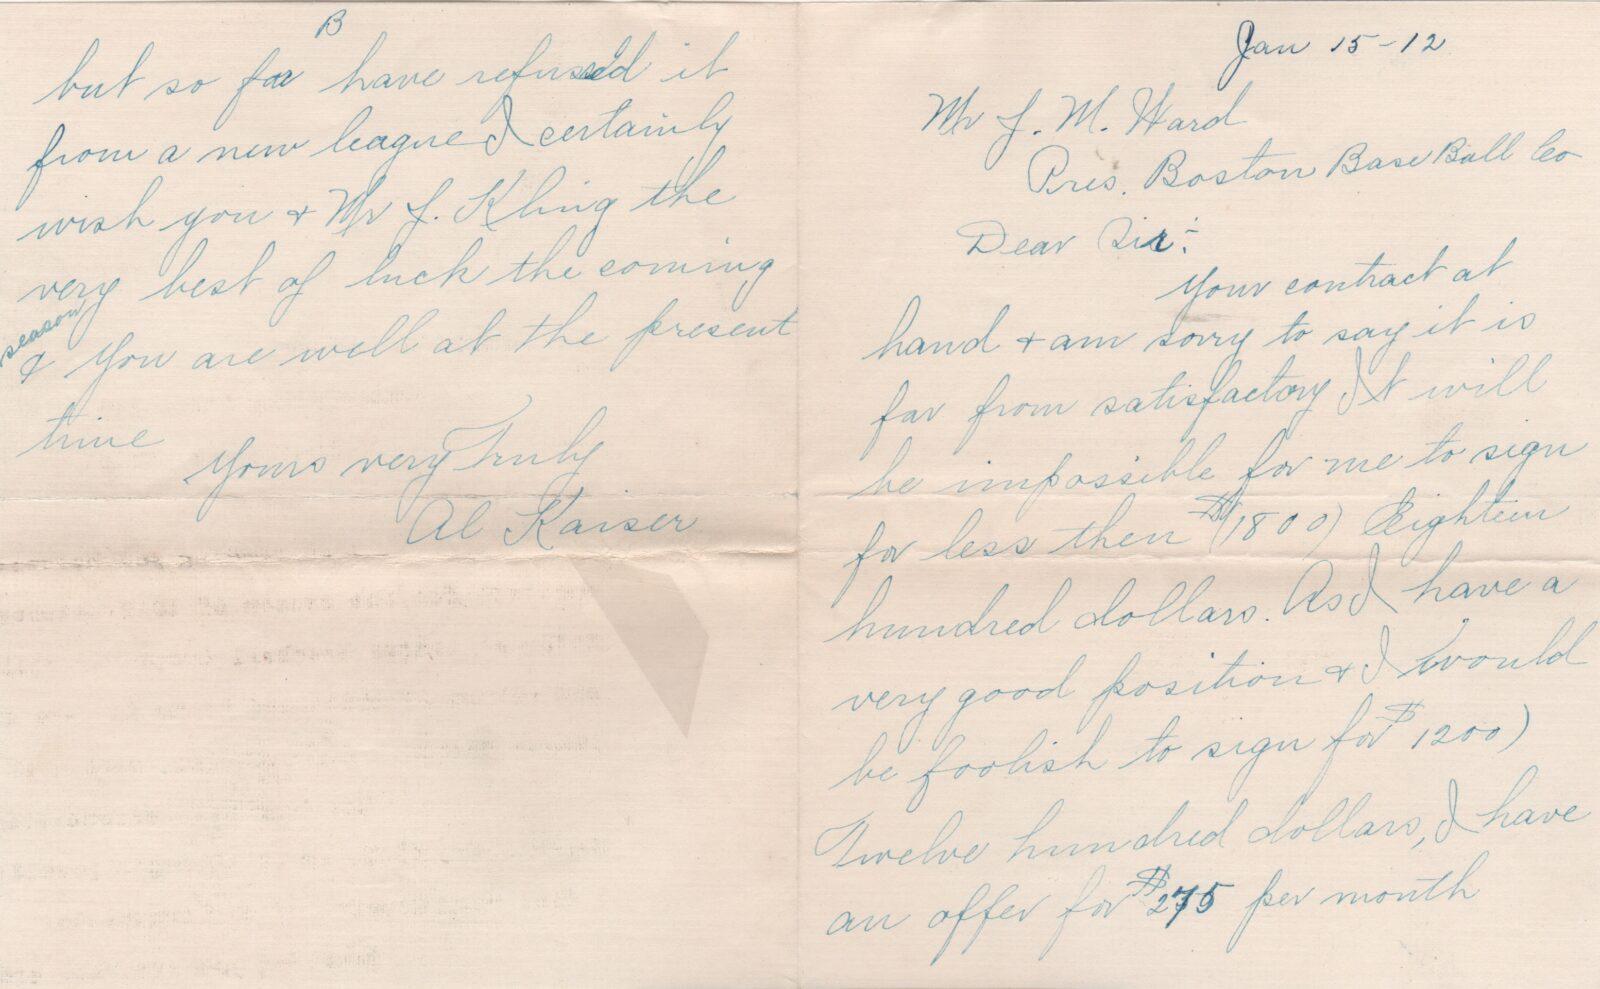 Jan 15-12
Mr J. M. Ward
Pres. Boston Base Ball Co
Dear Sir:-
Your contract at
hand + am sorry to say it is
far from satisfactory It will
be impossible for me to sign
for less then $(1800) Eighteen
hundred dollars. As I have a
very good position + I would
be foolish to sign for $1200)
Twelve hundred dollars, I have
an offer for $275 per month
B
but so far have refused it
from a new league I certainly
wish you + Mr J. Kling the
very best of luck the coming
season
& You are well at the present
time
Yours very Truly
Al Kaiser